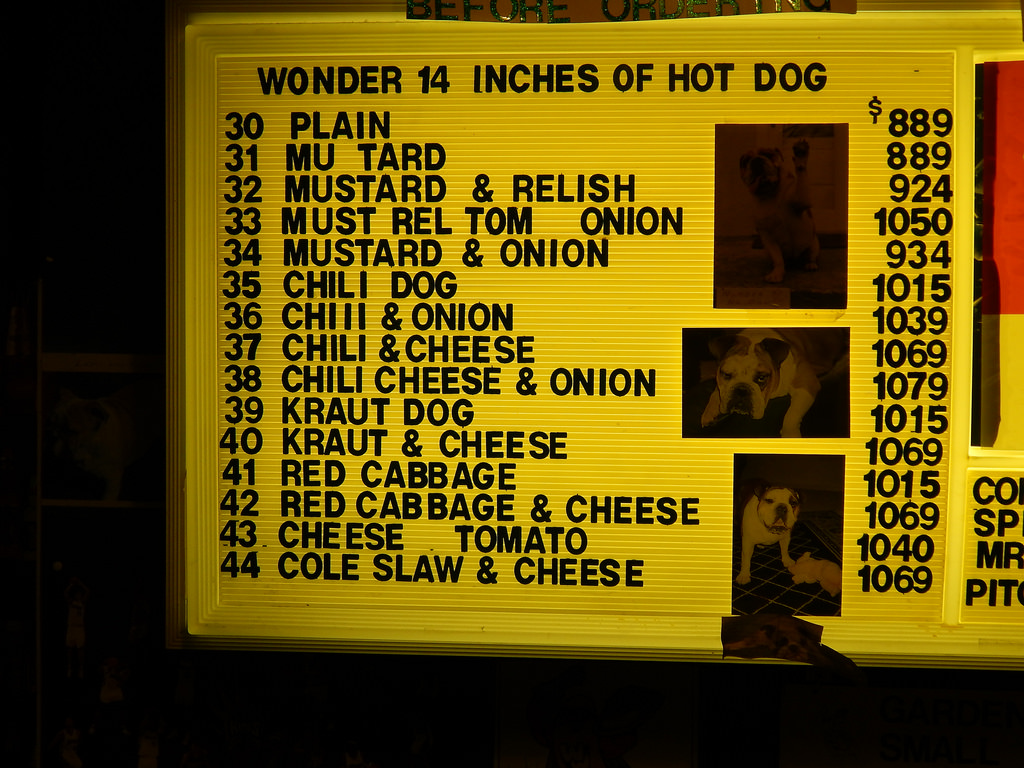 BEFORE ORDERING
WONDER 14 INCHES OF HOT DOG
30 PLAIN $889
31 MU TARD 889
32 MUSTARD & RELISH 924
33 MUST REL TOM ONION 1050
34 MUSTARD & ONION 934
35 CHILI DOG 1015
36 CHIII & ONION 1039
37 CHILI & CHEESE 1069
38 CHILI CHEESE & ONION 1079
39 KRAUT DOG 1015
40 KRAUT & CHEESE 1069
41 RED CABBAGE 1015
42 RED CABBAGE & CHEESE 1069
43 CHEESE TOMATO 1040
44 COLE SLAW & CHEESE 1069
MR
GARDEN
SMALL